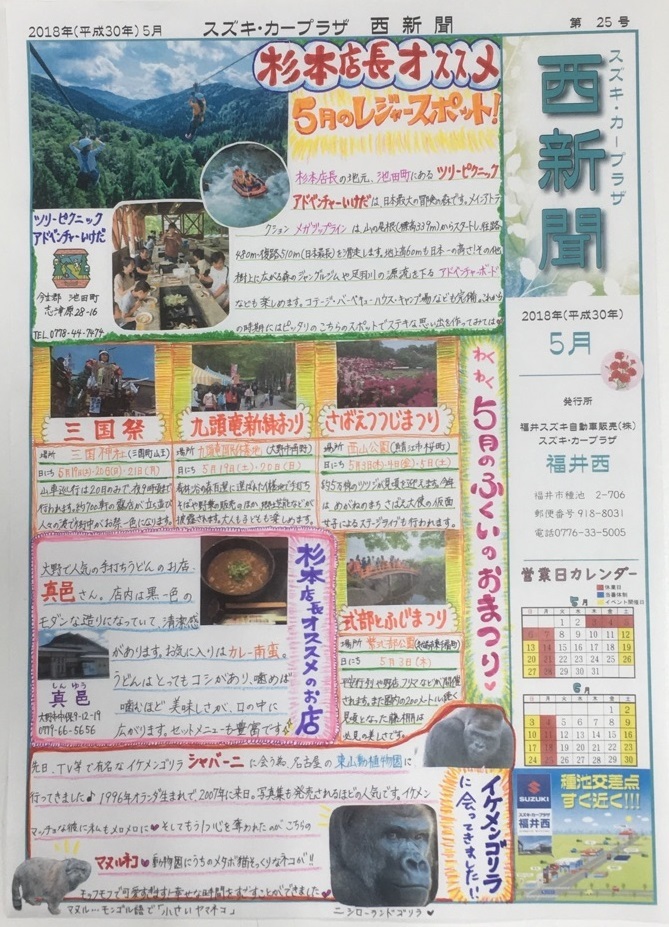 2018年(平成30年)5月
スズキ・カープラザ 西新聞
第 25号
杉本店長オススメ
5月のレジャースポット!
杉本店長の地元、池田町にあるツリーピクニック
アドベンチャーいけだは、日本最大の冒険の森です。メインアトラ
クション メガジップラインは、山の尾根(標高339m)からスタートし、往路
480m・復路510m(日本最長)を滑走します。地上高60mも日本一の高さ!その他
樹上に広がる森のジャングルジムや足羽川の源流を下るアドベンチャーボード
なども楽しめます。コテージ・バーベキューハウス・キャンプ場なども完備。これから
の時期にはピッタリのこちらのスポットでステキな思い出を作ってみては
ツリーピクニック
アドベンチャーいけだ
今立郡 池田町
志津原28-16
TEL.0778-44-7474
わくわく 5月のふくいのおまつり
三国祭
場所 三国神社(三国町山王)
日にち 5月19(土)・20(日)・21(月)
山車巡行は20日のみで、夜9時頃まで
行われます。約700軒の露店が立並び
人々の波で街中がお祭一色になります。
九頭竜新緑まつり
場所 九頭竜国民休養地(大野市角野)
日にち 5月19(土)・20(日)
そばや野菜の販売のほか、郷土芸能などが
披露されます。大人も子どもも楽しめます。
さばえつつじまつり
場所 西山公園(鯖江市桜町)
日にち 5月3(木)・4(金)・5(土)
約5万株のツツジが見頃を迎えます。今年
は、めがねのまちさばえ大使の仮面
女子によるステージライブも行われます。
式部とふじまつり
場所 紫式部公園
日にち 5月3日(木)
見頃となった藤棚は
必見の美しさです。
杉本店長オススメのお店
大野で人気の手打ちうどんのお店、
真邑さん。店内は黒一色の
モダンな造りになっていて、清潔感
があります。お気に入りはカレー南蛮。
うどんはとってもコシがあり、噛めば
噛むほど美味しさが、口の中に
広がります。セットメニューも豊富です
しんゆう
真邑
大野市中保9-12-19
0779-66-5656
イケメンゴリラに会ってきました!!
先日、TV等で有名なイケメンゴリラ シャバーニに会う為、名古屋の東山動植物園に
行ってきました♪ 1996年オランダ生まれで、2007年に来日。写真集も発売されるほどの人気です。イケメン
マッチョな彼に私もメロメロに♥ そしてもう1つ心を奪われたのがこちらの
マヌルネコ♥ 動物園にうちのメタボ猫そっくりなネコが!!
モフモフで可愛すぎます♥幸せな時間をすごすことができました♥
マヌル…モンゴル語で「小さいヤマネコ」
ニシローランドゴリラ♥
スズキ・カープラザ
西新聞
2018年(平成30年)
5月
発行所
福井スズキ自動車販売(株)
スズキ・カープラザ
福井西
福井市種池 2-706
郵便番号 918-8031
電話0776-33-5005
営業日カレンダー
休業日
当番体制
イベント開催日
5月
日 月 火 水 木 金 土
1 2 3 4 5
6 7 8 9 10 11 12
13 14 15 16 17 18 19
20 21 22 23 24 25 26
27 28 29 30 31
6月
日 月 火 水 木 金 土
1 2
3 4 5 6 7 8 9
10 11 12 13 14 15 16
17 18 19 20 21 22 23
24 25 26 27 28 29 30
SUZUKI
スズキ・カープラザ
福井西
種池交差点
すぐ近く!!!